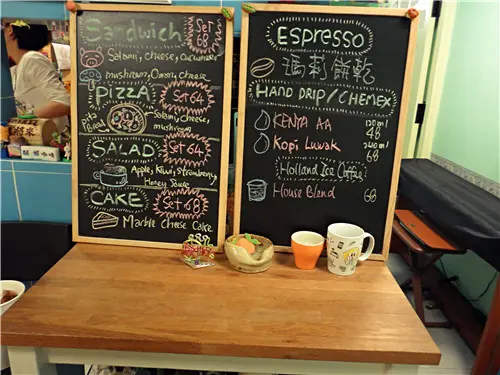 Sandwich Set 68
Salami, cheese, cucumber
mushroom, Onion, Cheese
PIZZA Set 64
Pita Bread
Salami, cheese
mushroom
SALAD Set 64
Apple, Kiwi, strawberry
Honey Sauce
CAKE Set 68
Marble Cheese Cake
ESPRESSO
瑪莉餅乾
HAND DRIP/CHEMEX
KENYA AA 120ml 48
Kopi Luwak 240ml 68
Holland Ice Coffee
House Blend 68